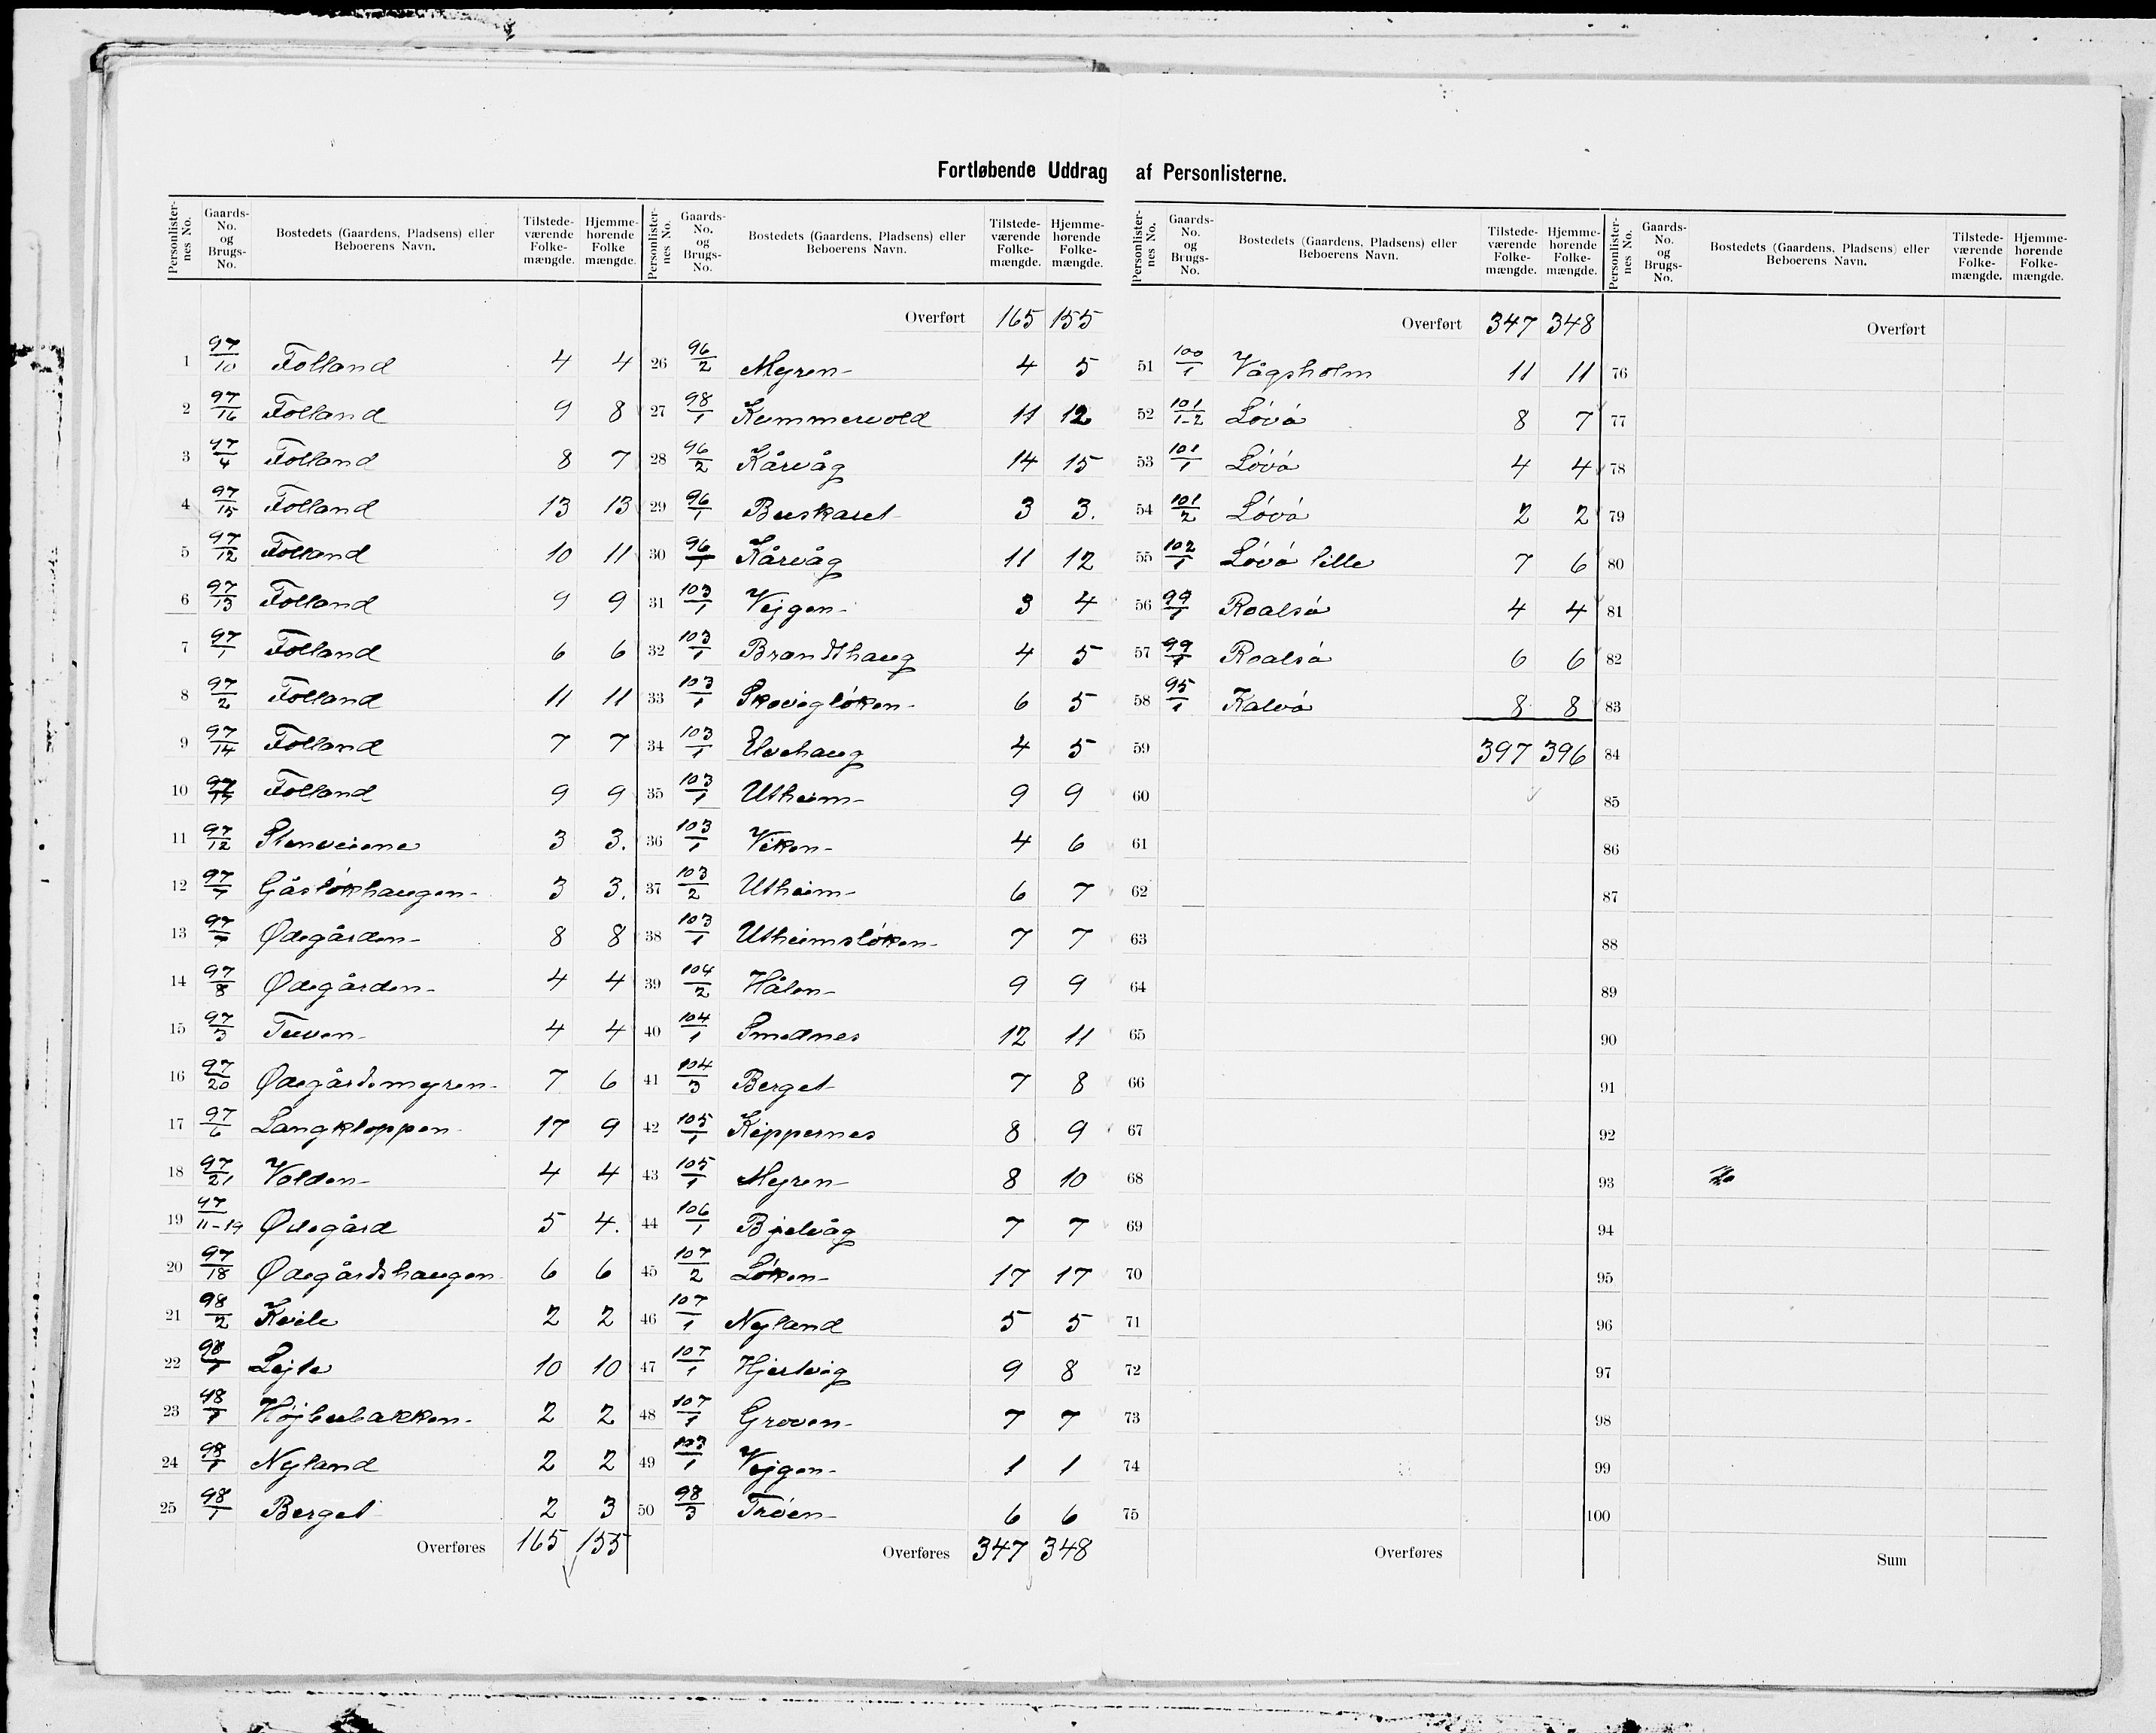 Fortløbende Uddrag af Personlisterne.
Personlister-nes No. Gaards-No. og Brugs-No. Bostedets (Gaardens, Pladsens) eller Beboerens Navn. Tilstede-værende Folke-mængde. Hjemme-hørende Folke mængde.
1 97/10 Folland 4 4
2 97/16 Folland 9 8
3 97/4 Folland 8 7
4 97/15 Folland 13 13
5 97/12 Folland 10 11
6 97/13 Folland 9 9
7 97/1 Folland 6 6
8 97/2 Folland 11 11
9 97/14 Folland 7 7
10 97/17 Folland 9 9
11 97/12 Stenveiene 3 3.
12 97/7 Gåsløkhaugen 3 3.
13 97/7 Ødegården 8 8
14 97/8 Ødegården 4 4
15 97/3 Tuven 4 4
16 97/20 Ødegårdsmyren 7 6
17 97/6 Langkloppen 17 9
18 97/21 Volden 4 4
19 97/11-19 Ødegård 5 4.
20 97/18 Ødegårdshaugen 6 6
21 98/2 Kvile 2 2
22 98/1 Lejte 10 10
23 98/1 Højbubakken 2 2
24 98/1 Nyland 2 2
25 98/1 Berget 2 3
Overføres 165 155
Personlister-nes No. Gaards-No. og Brugs-No. Bostedets (Gaardens, Pladsens) eller Beboerens Navn. Tilstede-værende Folke-mængde. Hjemme-hørende Folke-mængde.
Overført 165 155
26 96/2 Myren 4 5
27 98/1 Kummervold 11 12
28 96/2 Kårvåg 14 15
29 96/1 Buskaret 3 3.
30 96/1 Kårvåg 11 12
31 103/1 Vejgen 3 4
32 103/1 Brandthaug 4 5
33 103/1 Skovigløken 6 5
34 103/1 Elvehaug 4 5
35 103/1 Utheim 9 9
36 103/1 Viken 4 6
37 103/2 Utheim 6 7
38 103/1 Utheimsløken 7 7
39 104/2 Hålen 9 9
40 104/1 Smednes 12 11
41 104/3 Berget 7 8
42 105/1 Kippernes 8 9
43 105/1 Myren 8 10
44 106/1 Bjelvåg 7 7
45 107/2 Løken 17 17
46 107/1 Nyland 5 5
47 107/1 Hjertvig 9 8
48 107/1 Groven 7 7
49 103/1 Vejgen 1 1
50 98/3 Trøen 6 6
Overføres 347 348
Personlister-nes No. Gaards-No. og Brugs-No. Bostedets (Gaardens, Pladsens) eller Beboerens Navn. Tilstede-værende Folke-mængde. Hjemme-hørende Folke-mængde.
Overført 347 348
51 100/1 Vågsholm 11 11
52 101/1-2 Løvø 8 7
53 101/1 Løvø 4 4
54 101/2 Løvø 2 2
55 102/1 Løvø lille 7 6
56 99/1 Roalsø 4 4
57 99/1 Roalsø 6 6
58 95/1 Kalvø 8 8
59 397 396
60
61
62
63
64
65
66
67
68
69
70
71
72
73
74
75
Overføres
Personlister-nes No. Gaards-No. og Brugs-No. Bostedets (Gaardens, Pladsens) eller Beboerens Navn. Tilstede-værende Folke-mængde. Hjemme-hørende Folke-mængde.
Overført
76
77
78
79
80
81
82
83
84
85
86
87
88
89
90
91
92
93
94
95
96
97
98
99
100
Sum